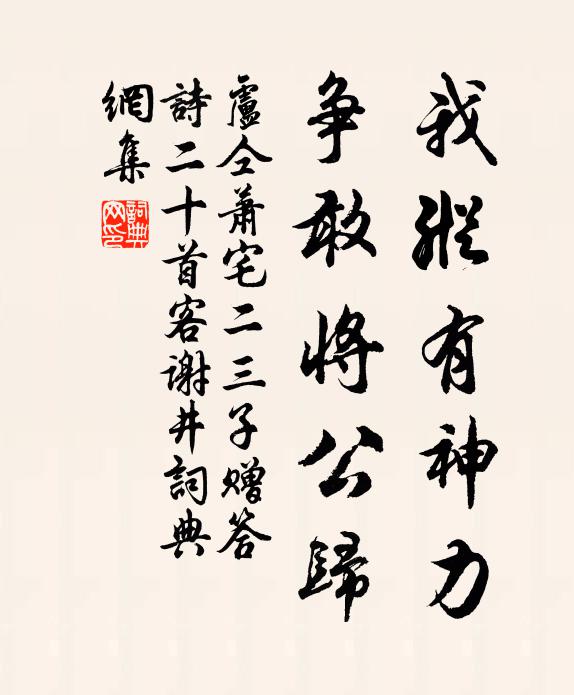 我縱有神力
争敢將公歸
盧仝蕭宅二三子贈答
詩二十首客谢井詞典
網集
詞典
网印